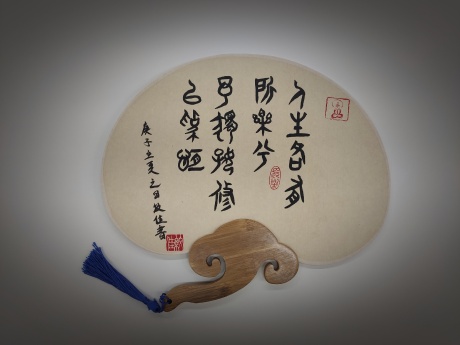 人生各有
所樂兮
獨好修
以為恆
庚子立夏之日佳書